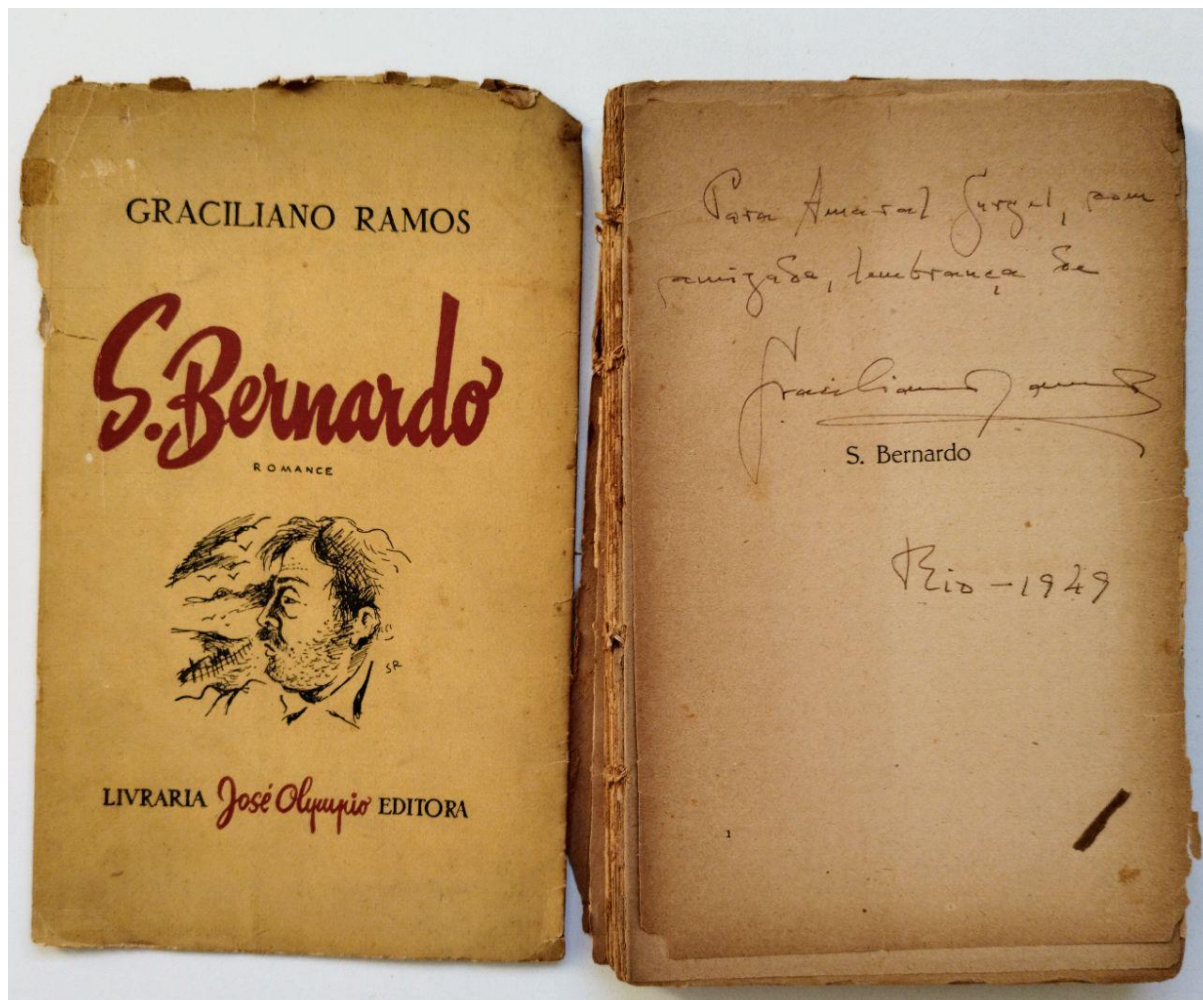 GRACILIANO RAMOS
S. Bernardo
ROMANCE
SR
LIVRARIA José Olympio EDITORA
Para Amaral Gurgel, com
amizade, lembrança de
Graciliano Ramos
S. Bernardo
Rio - 1949
1